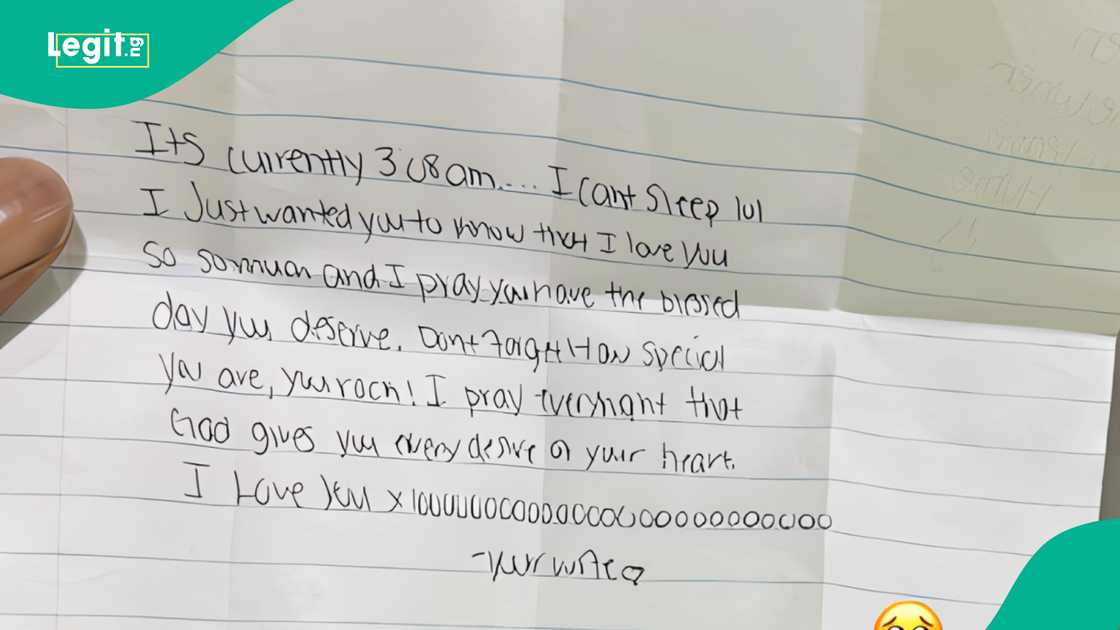 Legit.ng
Its currently 3:08am.... I cant sleep lol
I Just wanted you to know that I love you
so somuch and I pray you have the blessed
day you deserve. Dont forget How special
you are, your rock! I pray everynight that
God gives you every desire of your heart.
I Love you x 10000000000000000000000000
-your wife